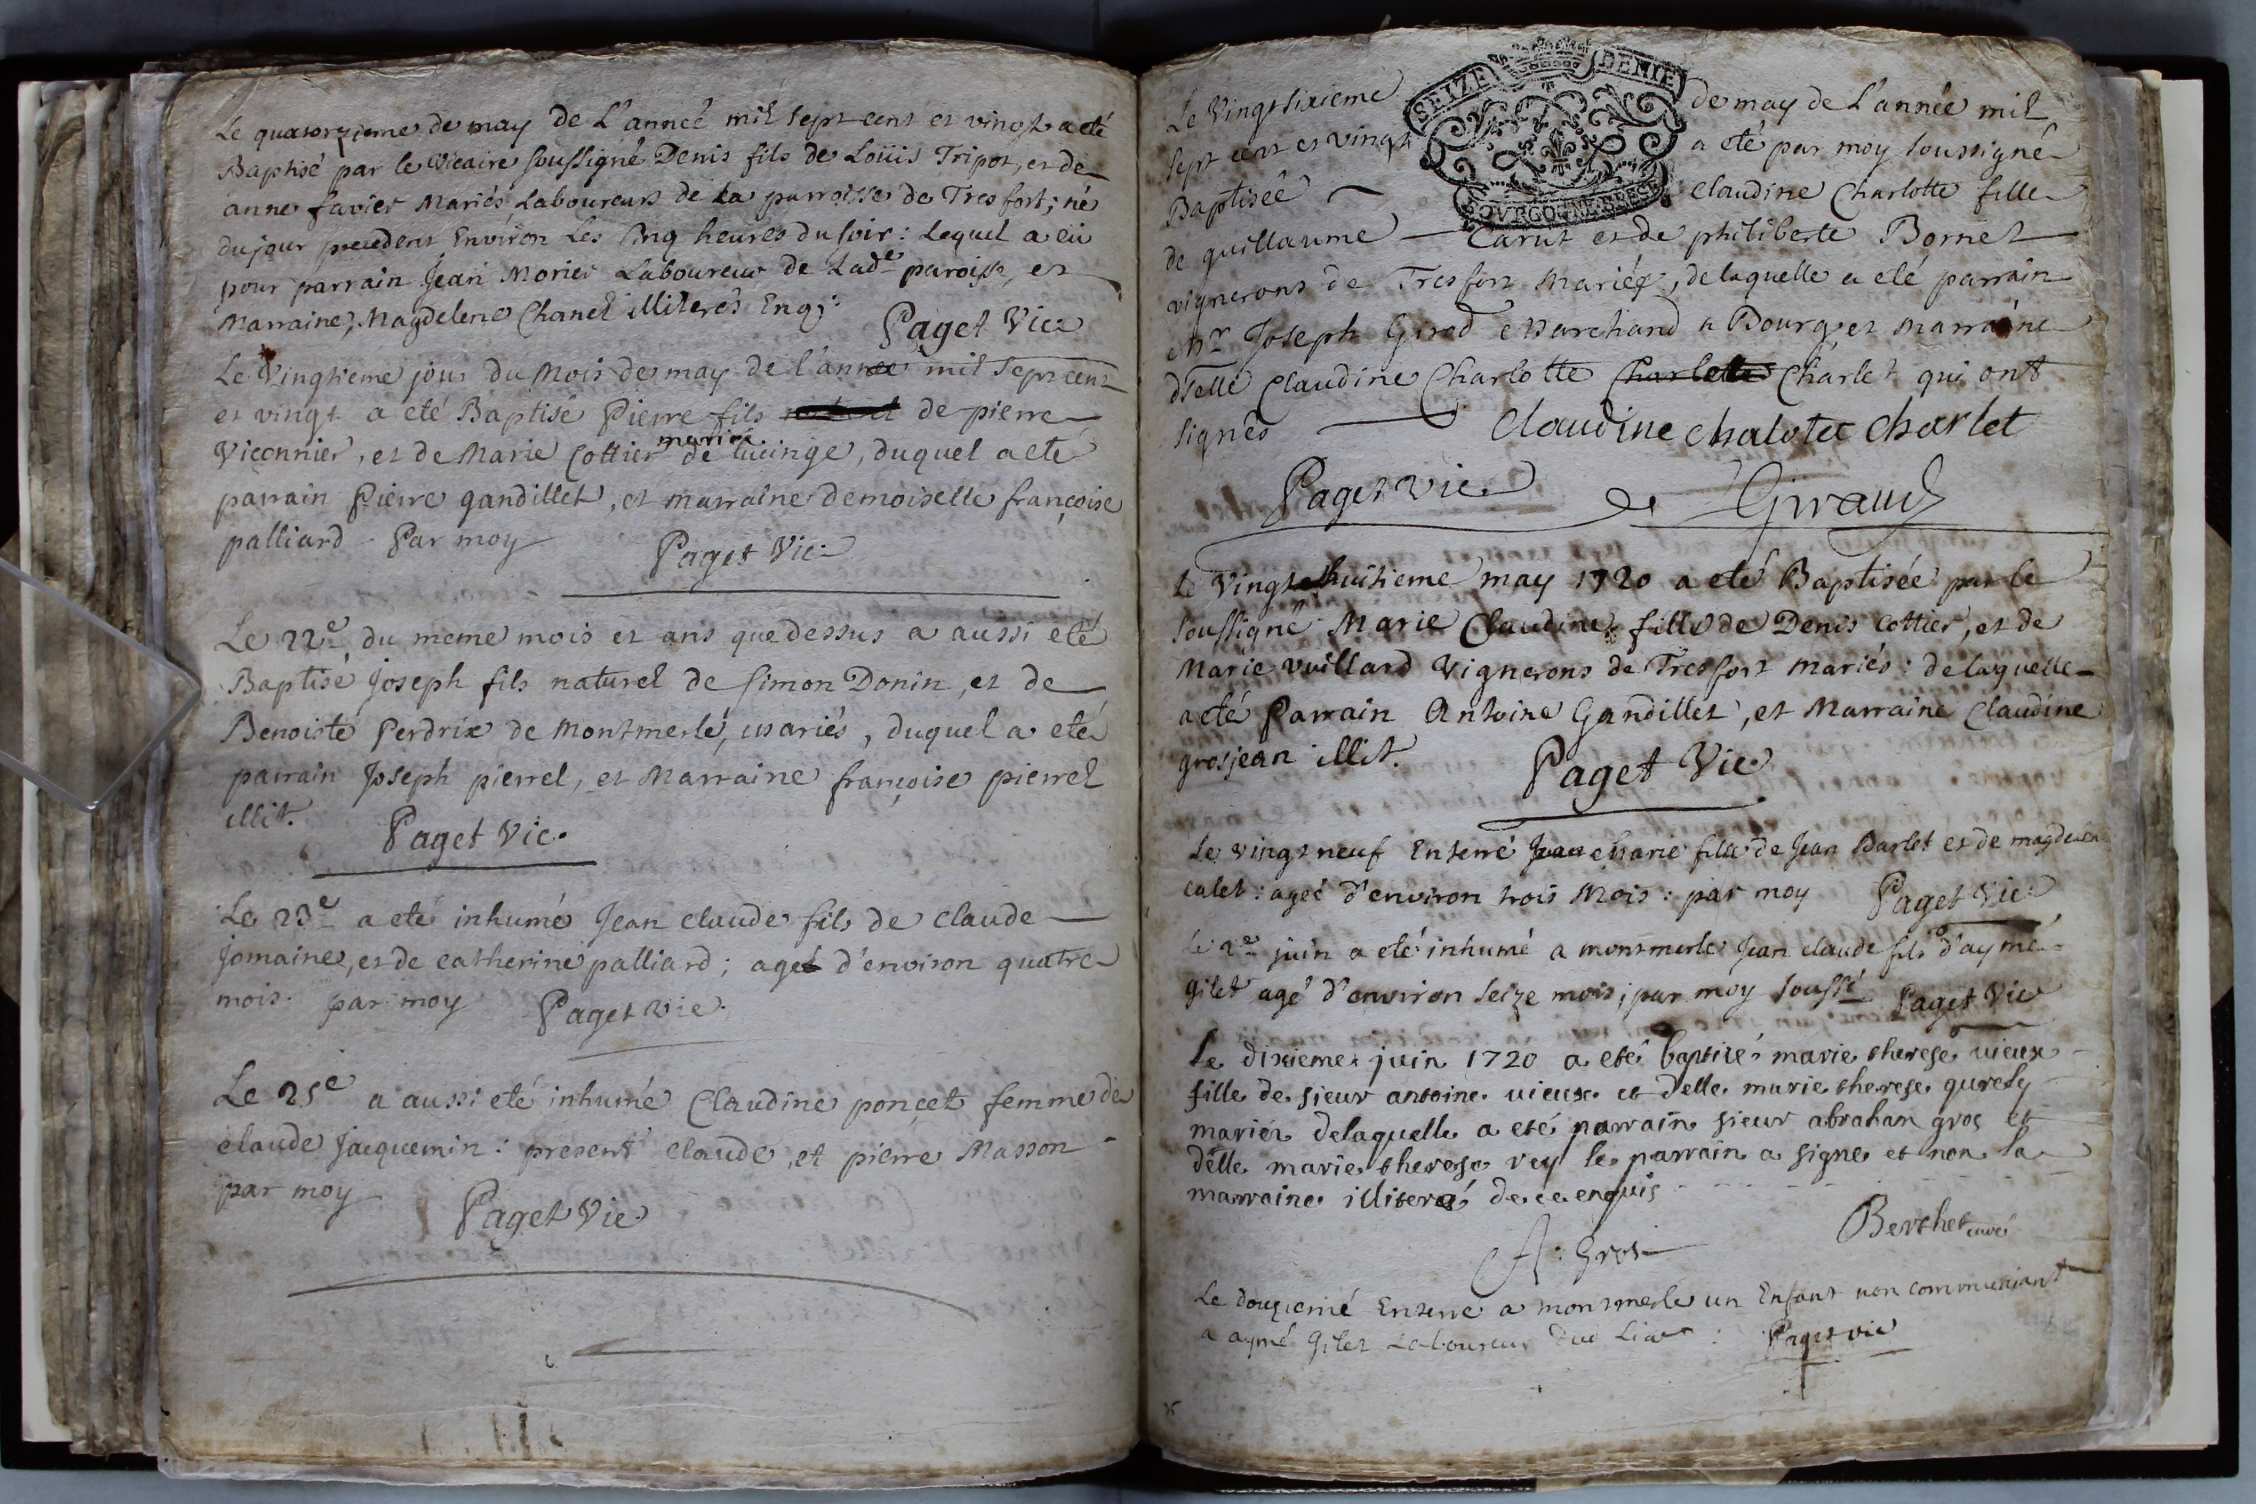 Le quatorzieme de may de L'année mil sept cent et vingt a eté
Baptisé par le Vicaire soussigné Denis fils de Loüis Tripot, et de
anne favier Mariés Laboureurs de La parroisse de Tresfort; né
du jour precedent Environ Les Cinq heures du soir: Lequel a eü
pour parrain Jean Morier Laboureur de Lade paroisse, et
Marraine, Magdelene Chanel illiterés Enq:
Paget Vic:
Le Vingtieme jour du Mois de may de l'année mil Sept cent
et vingt a eté Baptisé Pierre fils de pierre
Viconnier, et de Marie Cottier mariés de Cucinge, duquel a eté
parrain Pierre gandillet, et marraine demoiselle françoise
palliard Par moy
Paget Vic:
Le 22e du meme mois et ans que dessus a aussi eté
Baptisé Joseph fils naturel de Simon Donin, et de
Benoiste Perdrix de Montmerle, Mariés, duquel a eté
parrain Joseph pierrel, et Marraine françoise pierrel
illit.
Paget Vic.
Le 23e a eté inhumé Jean claude fils de Claude
Jomaine, et de catherine palliard; aget d'environ quatre
mois. par moy Paget Vic.
Le 25e a aussi eté inhumé Claudine poncet femme de
claude Jacquemin: present claude, et pierre Masson
par moy
Paget Vic.
SEIZE DENIE
BOVRGOGNE BRESSE
Le Vingt sixieme de may de L'année mil
sept cent et vingt a eté par moy soussigné
Baptisée Claudine Charlotte fille
de guillaume Carut et de philiberte Bornet
vignerons de Tresfort Mariés, de laquelle a eté parrain
Mr Joseph Girod Marchand a Bourg, et marraine
dlelle Claudine Charlotte Charlotte Charlet qui ont
signés
Claudine chalotec charlet
Paget vic
Giraud
Le Vingt huitieme may 1720 a eté Baptisée par le
soussigné Marie Claudine fille de Denis Cottier, et de
Marie Vuillard Vignerons de Tresfort Mariés: de laquelle
a eté Parrain Antoine Gandillet, et Marraine Claudine
grosjean illit.
Paget Vic
Le vingt neuf Enterré Marie fille de Jean Barlet et de magdelen
calet: ageé d'environ trois Mois: par moy Paget Vic:
Le 2e juin a eté inhumé a montmerle Jean claude fils d'aymé
gilet agé d'environ seize mois; par moy soussé Paget Vic
Le dixieme juin 1720 a eté baptisé marie therese vieux
fille de sieur antoine vieux et delle marie therese qurety
mariez delaquelle a eté parrain sieur abrahan gros et
delle marie therese rey le parrain a signe et non la
marraine illiteré de ce enquis
A: Gros
Berthet curé
Le douzieme Enterre a montmerle un Enfant non communiant
a aymé Gilet Laboureur Paget vic